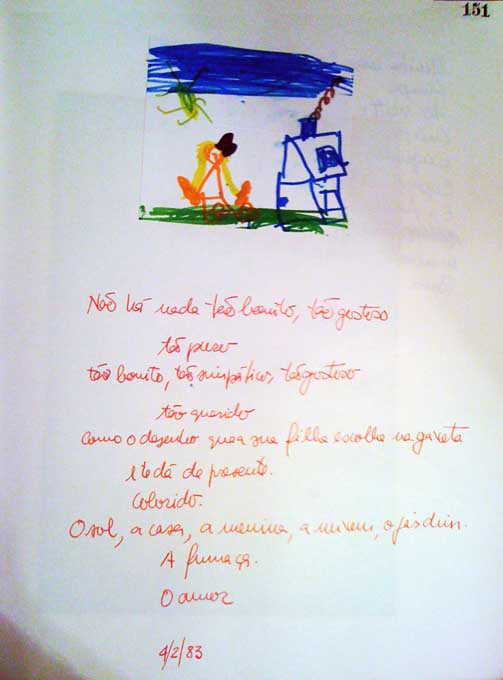 151
Não há nada tão bonito, tão gostoso
tão puro
tão bonito, tão simpático, tão gostoso
tão querido
como o desenho que a sua filha escolhe na gaveta
e te dá de presente.
Colorido.
O sol, a casa, a menina, a nuvem, o jardim.
A fumaça.
O amor
4/2/83